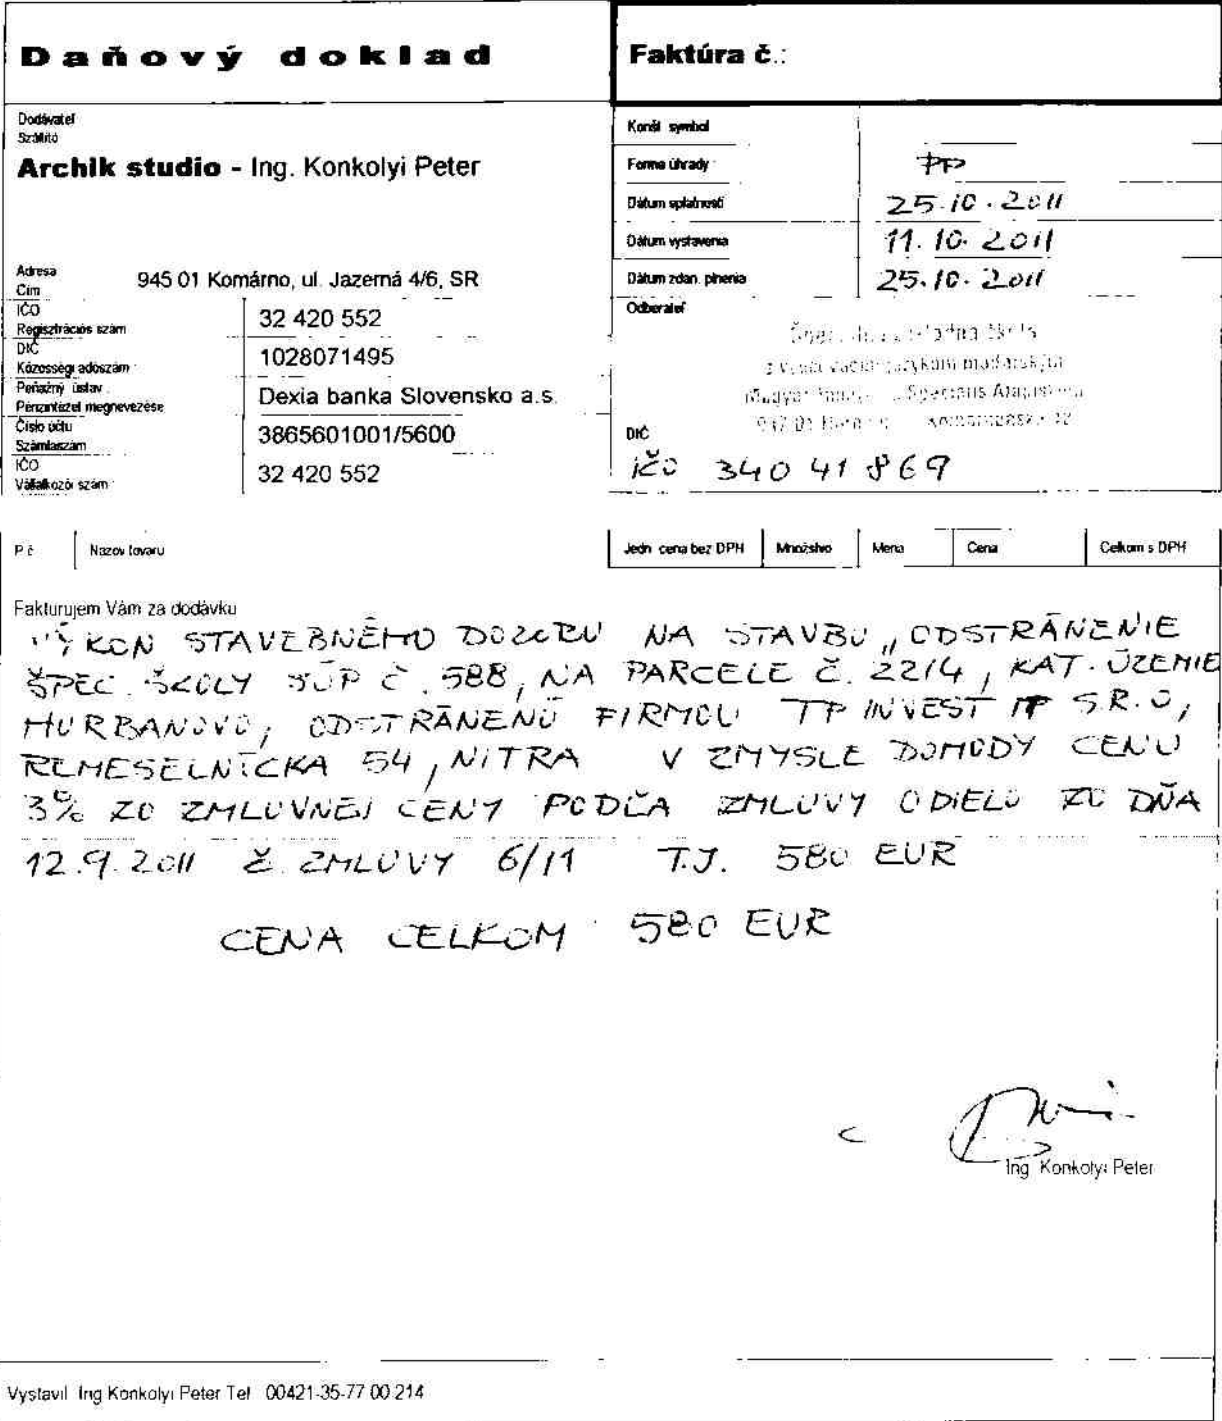 Daňový doklad
Faktúra č.:
Dodávateľ
Szállító
Archik studio - Ing. Konkolyi Peter
Adresa
Cím
945 01 Komárno, ul. Jazerná 4/6, SR
IČO
Regisztrációs szám
32 420 552
DIČ
Közösségi adószám
1028071495
Peňažný ústav
Pénzintézet megnevezése
Dexia banka Slovensko a.s.
Číslo účtu
Számlaszám
3865601001/5600
IČO
Vállalkozói szám
32 420 552
Konšt. symbol
Forma úhrady PP
Dátum splatnosti 25.10.2011
Dátum vystavenia 11.10.2011
Dátum zdan. plnenia 25.10.2011
Odberateľ
DIČ
IČO 34041869
P.č. Nazov tovaru Jedn. cena bez DPH Množstvo Mena Cena Celkom s DPH
Fakturujem Vám za dodávku
VÝKON STAVEBNÉHO DOZORU NA STAVBU „ODSTRÁNENIE
ŠPEC. ŠKOLY SÚP Č. 588, NA PARCELE Č. 2214, KAT. ÚZEMIE
HURBANOVO, ODSTRÁNENÚ FIRMOU TP INVEST S.R.O,
REMESELNÍCKA 54, NITRA V ZMYSLE DOHODY CENU
3% ZO ZMLUVNEJ CENY PODĽA ZMLUVY O DIELO ZO DŇA
12.9.2011 Č. ZMLUVY 6/11 T.J. 580 EUR
CENA CELKOM 580 EUR
Ing. Konkolyi Peter
Vystavil Ing Konkolyi Peter Tel 00421-35-77 00 214